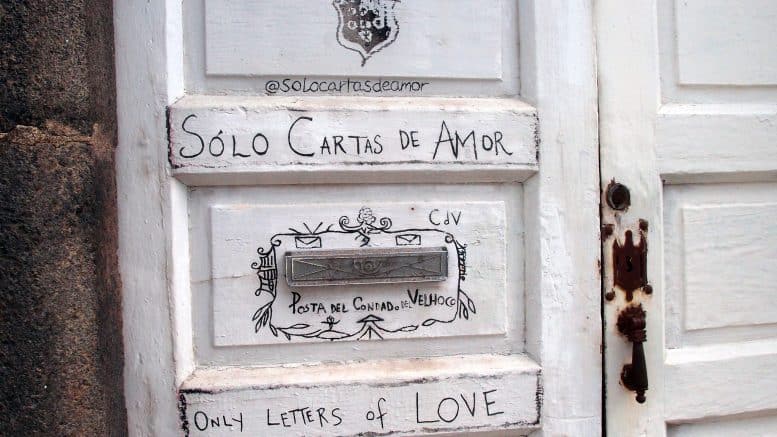 @solocartasdeamor
SÓLO CARTAS DE AMOR
CdV
POSTA DEL CONDADO DEL VELHOCO
ONLY LETTERS of LOVE